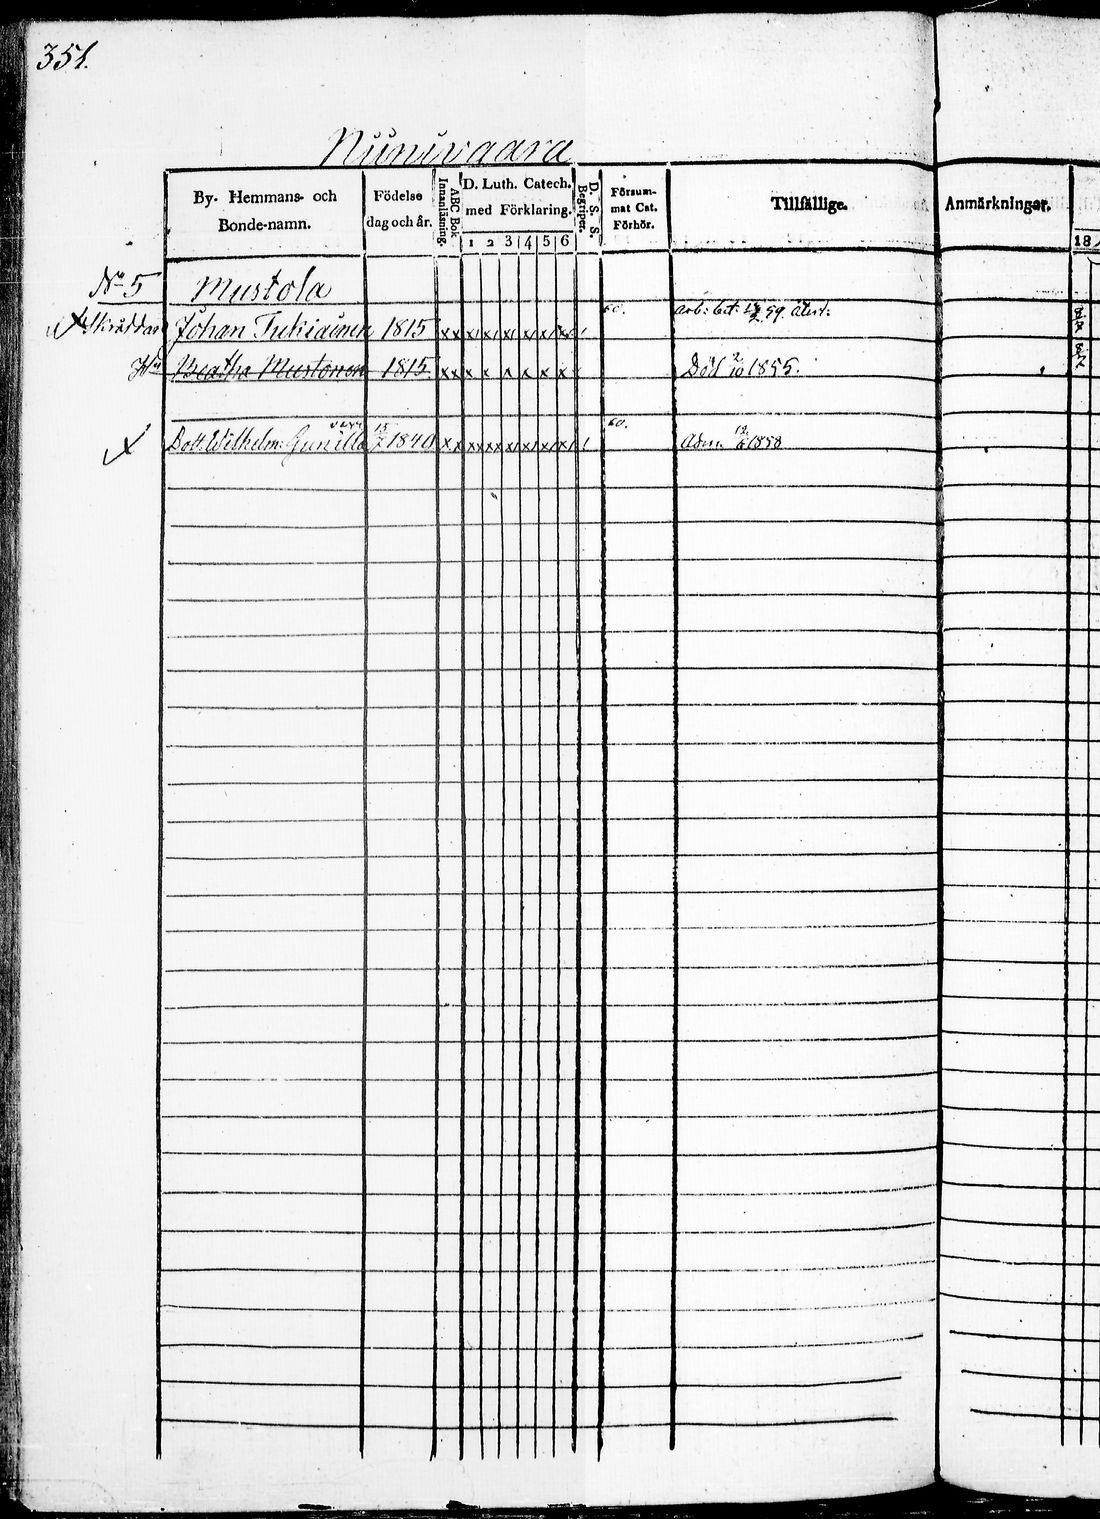 351.
Nunivaara
By- Hemmans- och Bonde-namn.
Födelse dag och år.
ABC Bok Innanläsning.
D. Luth. Catech. med Förklaring.
1 2 3 4 5 6
D. S. S. Begriper.
Försum- mat Cat. Förhör.
Tillfällige.
Anmärkningar.
18
No 5 Mustola
Skräddar Johan 1815 x x x x x x x x 60. arb: bet: 59
Hu Beatha Mustonen 1815. x x x x x x x x Död 2/10 1855.
Dott. Wilhelm: Gunilla 15/7 1840 x x x x x x x x 60. Adm. 12/6 1858